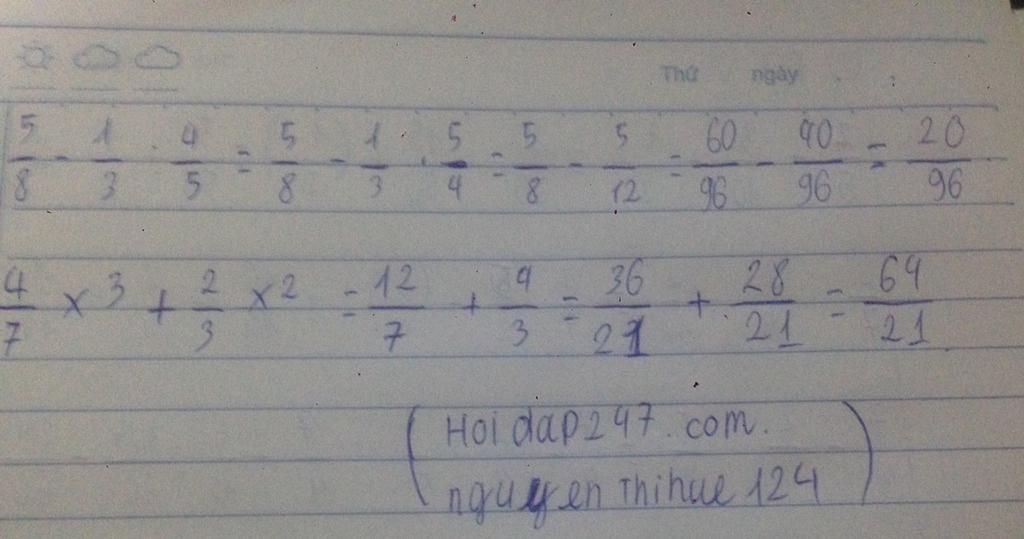 Thứ ngày
5/8 - 1/3 : 4/5 = 5/8 - 1/3 . 5/4 = 5/8 - 5/12 = 60/96 - 40/96 = 20/96
4/7 x 3 + 2/3 x 2 = 12/7 + 4/3 = 36/21 + 28/21 = 64/21
(Hoidap247.com.
nguyenthihue124)